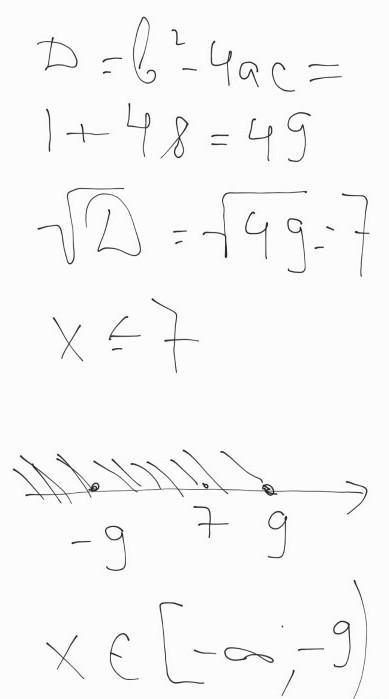 D = b² - 4ac =
1 + 48 = 49
√D = √49 = 7
x ≤ 7
-9 7 9
x ∈ [-∞; -9)